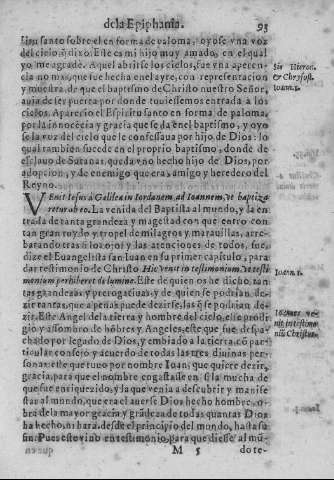 de la Epiphania. 95
ritu santo sobre el en forma de paloma, y oyose vna voz
del cielo, q̃ dixo. Este es mi hijo muy amado, en el qual
yo me agradè. Aquel abrirse los cielos, fue vna aparen-
cia no mas, que fue hecha en el ayre, con representacion
y muestra, de que el baptismo de Christo nuestro Señor,
auia de ser puerta por donde tuuiessemos entrada a los
cielos. Aparecio el Espiritu santo en forma de paloma,
por la inocẽcia y gracia que se da en el baptismo, y oyo
se la voz del cielo que le confessaua por hijo de Dios: lo
qual tambien sucede en el proprio baptismo, donde de
esclauo de Satanas, queda vno hecho hijo de Dios, por
adopcion, y de enemigo que era, amigo y heredero del
Reyno.
VEnit Iesus à Galilea in Iordanem, ad Ioannem, vt baptiza
retur ab eo. La venida del Baptista al mundo, y la en
trada de tanta grandeza y magestad con que entrò con
tan gran ruydo y tropel de milagros y marauillas, arre-
batando tras si los ojos y las atenciones de todos, fue,
dize el Euangelista san Iuan en su primer capitulo, para
dar testimonio de Christo. Hic venit in testimonium. Vt testi-
monium perhiberet de lumine. Este de quien os he dicho, tan
tas grandezas y prerogatiuas; y de quien se podrian de-
zir tantas, que a penas puede dezirse, las q̃ se podrian de-
zir. Este Angel de la tierra y hombre del cielo, este prodi-
gio y assombro de hõbres y Angeles, este que fue despa-
chado por legado de Dios, y embiado a la tierra, cõ par-
ticular consejo y acuerdo de todas las tres diuinas per-
sonas: este que tuuo por nombre Ioan, que quiere dezir,
gracia, para que el nombre cõgastasse en si la mucha de
que fue enriquezido, y la que venia a descubrir y manife
star al mundo, que era el auerse Dios hecho hombre, o-
bra de la mayor gracia y grãdeza de todas quantas Dios
ha hecho, ni hara, desde el principio del mundo, hasta su
fin. Pues este vino en testimonio, para que diesse al mũ-
M 5 do te-
Sic Hieron.
& Chrysost.
Ioann. 1.
Ioann. 1.
Ioannes ve-
nit in testimo
niũ Christi.